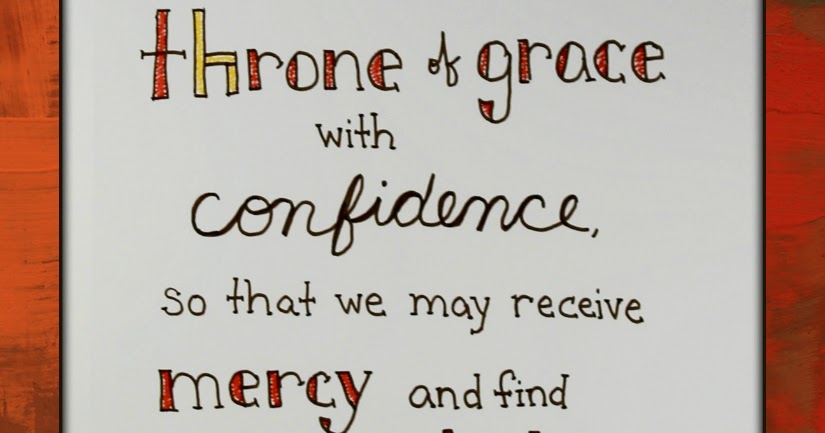 throne of grace
with
confidence,
so that we may receive
mercy and find